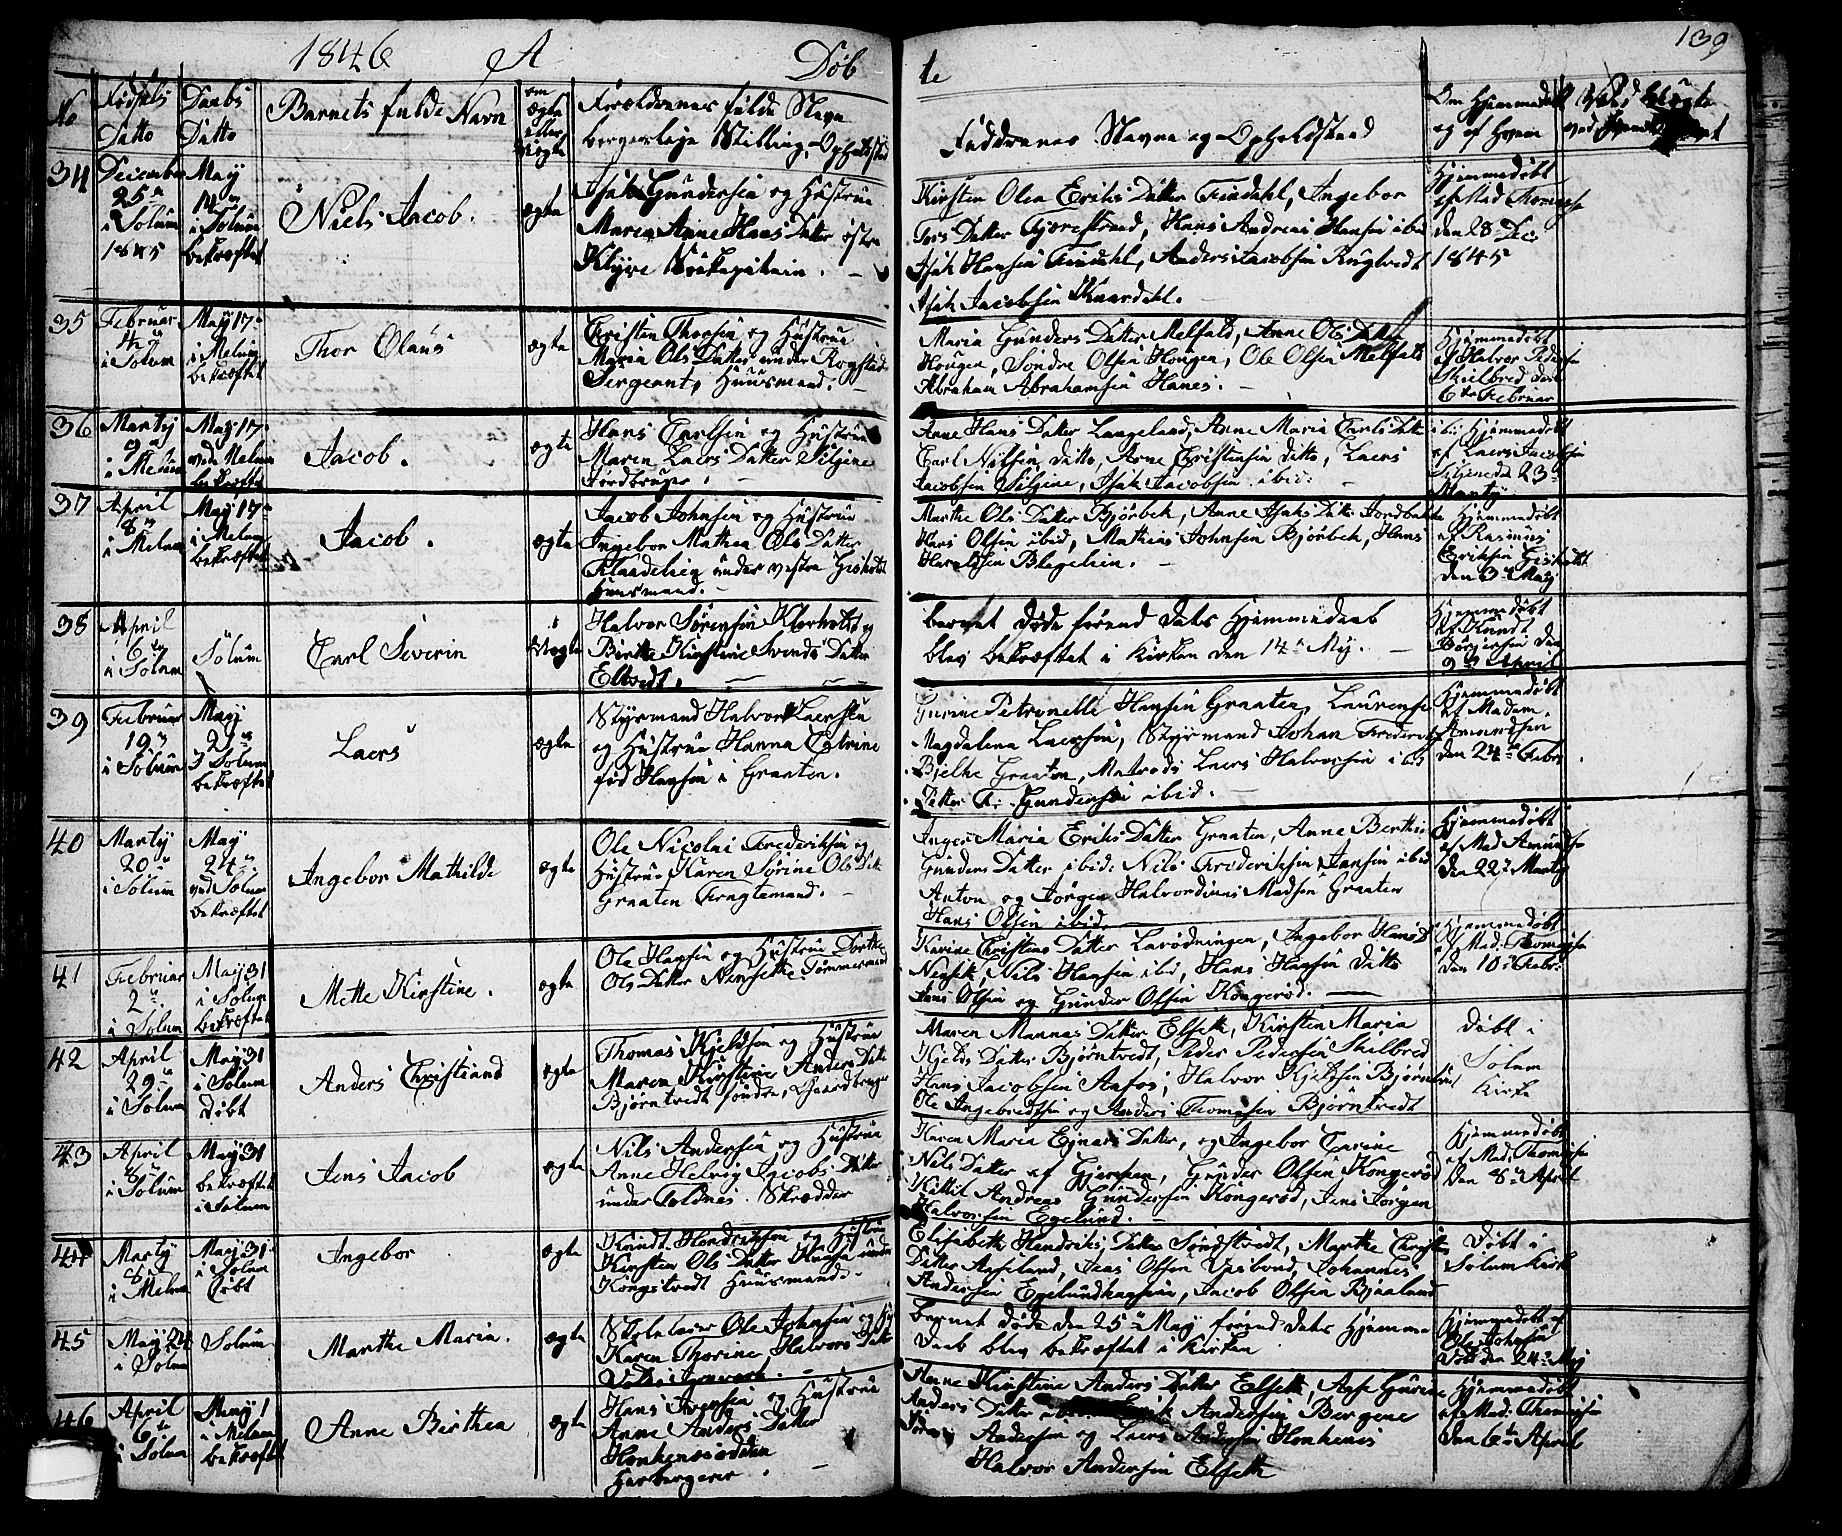 1846 A Døb
te 139
No
Fødsels
Datto
Daabs
Datto
Barnets fulde Navn
om
ægte
eller
uægte
Forældrenes fulde Navn
borgerlige Stilling, Opholdsted
Faddrenes Navne og Opholdstæd
Om Hjemmedøbt
og af Hvem
34
December
25de
i Solum
1845
May
14de
i Solum
bekræftet
Niels Jacob.
ægte
Isak Gundersen og Hustrue
Maren Anne Hans Datter østre
Klyve Skibskapitain.
Kirsten Olea Eriks Datter Findahl, Ingebor
Tors Datter Tjærestrand, Hans Andreas Hansen ibid
Isak Hansen Findahl, Anders Jacobsen Ringtvedt
Isak Jacobsen Knardahl.
Hjemmedøbt
af Mad Thomese
den 28 Dec:
1845
35
Februar
4de
i Solum
May 17de
i Melum
bekræftet
Thor Olaus
ægte
Christen Thorsen og Hustrue
Maria Ols Datter under Rognstad
Sergeant, Huusmand.
Maria Gunders Datter Melfald, Anne Ols Datter
Hougen, Søndre Olsen Hougen, Ole Olsen Melfald
Abraham Abrahamsen Hanes.
Hjemmedøbt
af Halvor Pedersen
Skilbred den
6te Februar
36
Martij
9de
i Melum
May 17de
ved Melum
bekræftet
Jacob.
ægte
Hans Carlsen og Hustrue
Maren Laers Datter Siljine
Jordbruger.
Anne Hans Datter Langeland, Anne Maria Carls Datter
Carl Nilsen Ditto, Arne Christensen Ditto, Laers
Jacobsen Siljine, Isak Jacobsen ibid:
ibid Hjemmedøbt
af Laers Jacobsen
Siljine den 23de
Martij
37
April
8de
i Melum
May 17de
i Melum
bekræftet
Jacob.
ægte
Jacob Johnsen og Hustrue
Ingebor Mathea Ols Datter
Klaadelien under vestre Gisholdt
Huusmand.
Marthe Ols Datter Bjørbek, Anne Isaks Datter Jordbakken
Hans Olsen ibid, Mathias Johnsen Bjørbek, Hans
Haraldsen Blegelien.
Hjemmedøbt
af Rasmus
Eriksen Gisholdt
den 3de May
38
April
6te
i Solum
Solum
Carl Severin
Uægte
Halvor Sørensen Klovholt og
Birthe Kirstine Svends Datter
Eltvedt.
barnet døde førend dets Hjemmedaab
blev bekræftet i Kirken den 14de My.
Hjemmedøbt
af Knudt
Børgersen den
9de April
39
Februar
19de
i Solum
May
21de
i Solum
bekræftet
Laers
ægte
Styrmand Halvor Laersen
og Hustrue Hanna Catrine
fød Hansen i Graaten.
Gurine Petronelle Hansen Graaten, Laurense
Magdalena Laersen, Styrmand Johan Frederik
Bjelke Graaten, Matrods Laers Halvorsen ibid
Petter Fr: Gundersen ibid.
Hjemmedøbt
af Madam.
Amundsen
den 24de Febr
40
Martij
20de
i Solum
May
24de
ved Solum
bekræftet
Ingebor Mathilde
ægte
Ole Nicolai Frederiksen og
Hustrue Karen Sørine Ols Datter
Graaten Fragtemand.
Inger Maria Eriks Datter Graaten, Anne Berthe
Gunders Datter ibid: Nils Frederiksen Jansen ibid
Anton og Jørgen Halvordinus Madsen Graaten
Hans Olsen ibid.
Hjemmedøbt
af Mad Amundse
den 22de Martij
41
Februar
2de
i Solum
May 31
i Solum
bekræftet
Mette Kirstine.
ægte
Ole Hansen og Hustrue Dorthe
Ols Datter Nensethe Tømmermand
Karine Christens Datter Larødningen, Ingebor Hans D
Nensæt, Nils Hansen ibid, Hans Hansen Ditto
Jens Olsen og Gunder Olsen Kongerød.
Hjemmedøbt
af Mad: Thomesen
den 10de Febr:
42
April
29de
i Solum
May 31
i Solum
Døbt
Anders Christians
ægte
Thomas Kjeldsen og Hustrue
Maren Kirstine Anders Datter
Bjørntvedt søndre, Gaardbruger
Maren Mannas Datter Elseth, Kirsten Maria
Kjelds Datter Bjørntvedt, Peder Pedersen Skilbred
Hans Jacobsen Aafos, Halvor Kjeldsen Bjørntvedt
Ole Ingebredtsen og Anders Thomesen Bjørntvedt
Døbt i
Solum
Kirke
43
April
i Solum
May 31
bekræftet
i Solum
Jens Jacob
ægte
Nils Andersen og Hustrue
Anne Helvig Jacobs Datter
under Toldnes. Skrædder
Karen Maria Ejnars Datter, og Ingebor Carine
Nils Datter af Gjerpen, Gunder Olsen Kongerød
Kittil Andreas Gundersen Kongerød, Jens Jørgen
Halvorsen Egelund.
Hjemmedøbt
af Mad: Thomesen
den 8de April
44
Martij
i Melum
May 31
i Solum
Døbt
Ingebor
ægte
Knudt Hendriksen og Hustrue
Kirsten Ols Datter Haugen under
Kongstvedt Huusmand.
Elisabeth Hendriks Datter Sondstvedt, Marthe Christens
Datter Aaseland, Jens Olsen Vaibond, Johannes
Andersen Egelundhagen, Jacob Olsen Bjaaland
Døbt i
Solum Kirke
45
May 24
i Solum
Solum
Marthe Maria.
ægte
Skolelærer Ole Johnsen og H
Karen Thorine Halvors Datter
Barnet døde den 25de May førend dets Hjemme
Daab blev bekræftet i Kirken
Hjemmedøbt af
Ole Johnsen
den 24de May
46
April
6te
i Solum
May 1
i Melum
bekræftet
Anne Birthea
ægte
Hans Iversen og Hustrue
Anne Anders Datter
Honhensødden
Harbergerer.
Anne Kirstine Anders Datter Elseth, Aase Gurine
Anders Datter Andersen Bergene
Andersen og Laers Andersen Honhenis
Halvor Andersen Elseth
Hjemmedøbt
af Mad: Thomesen
den 6te April